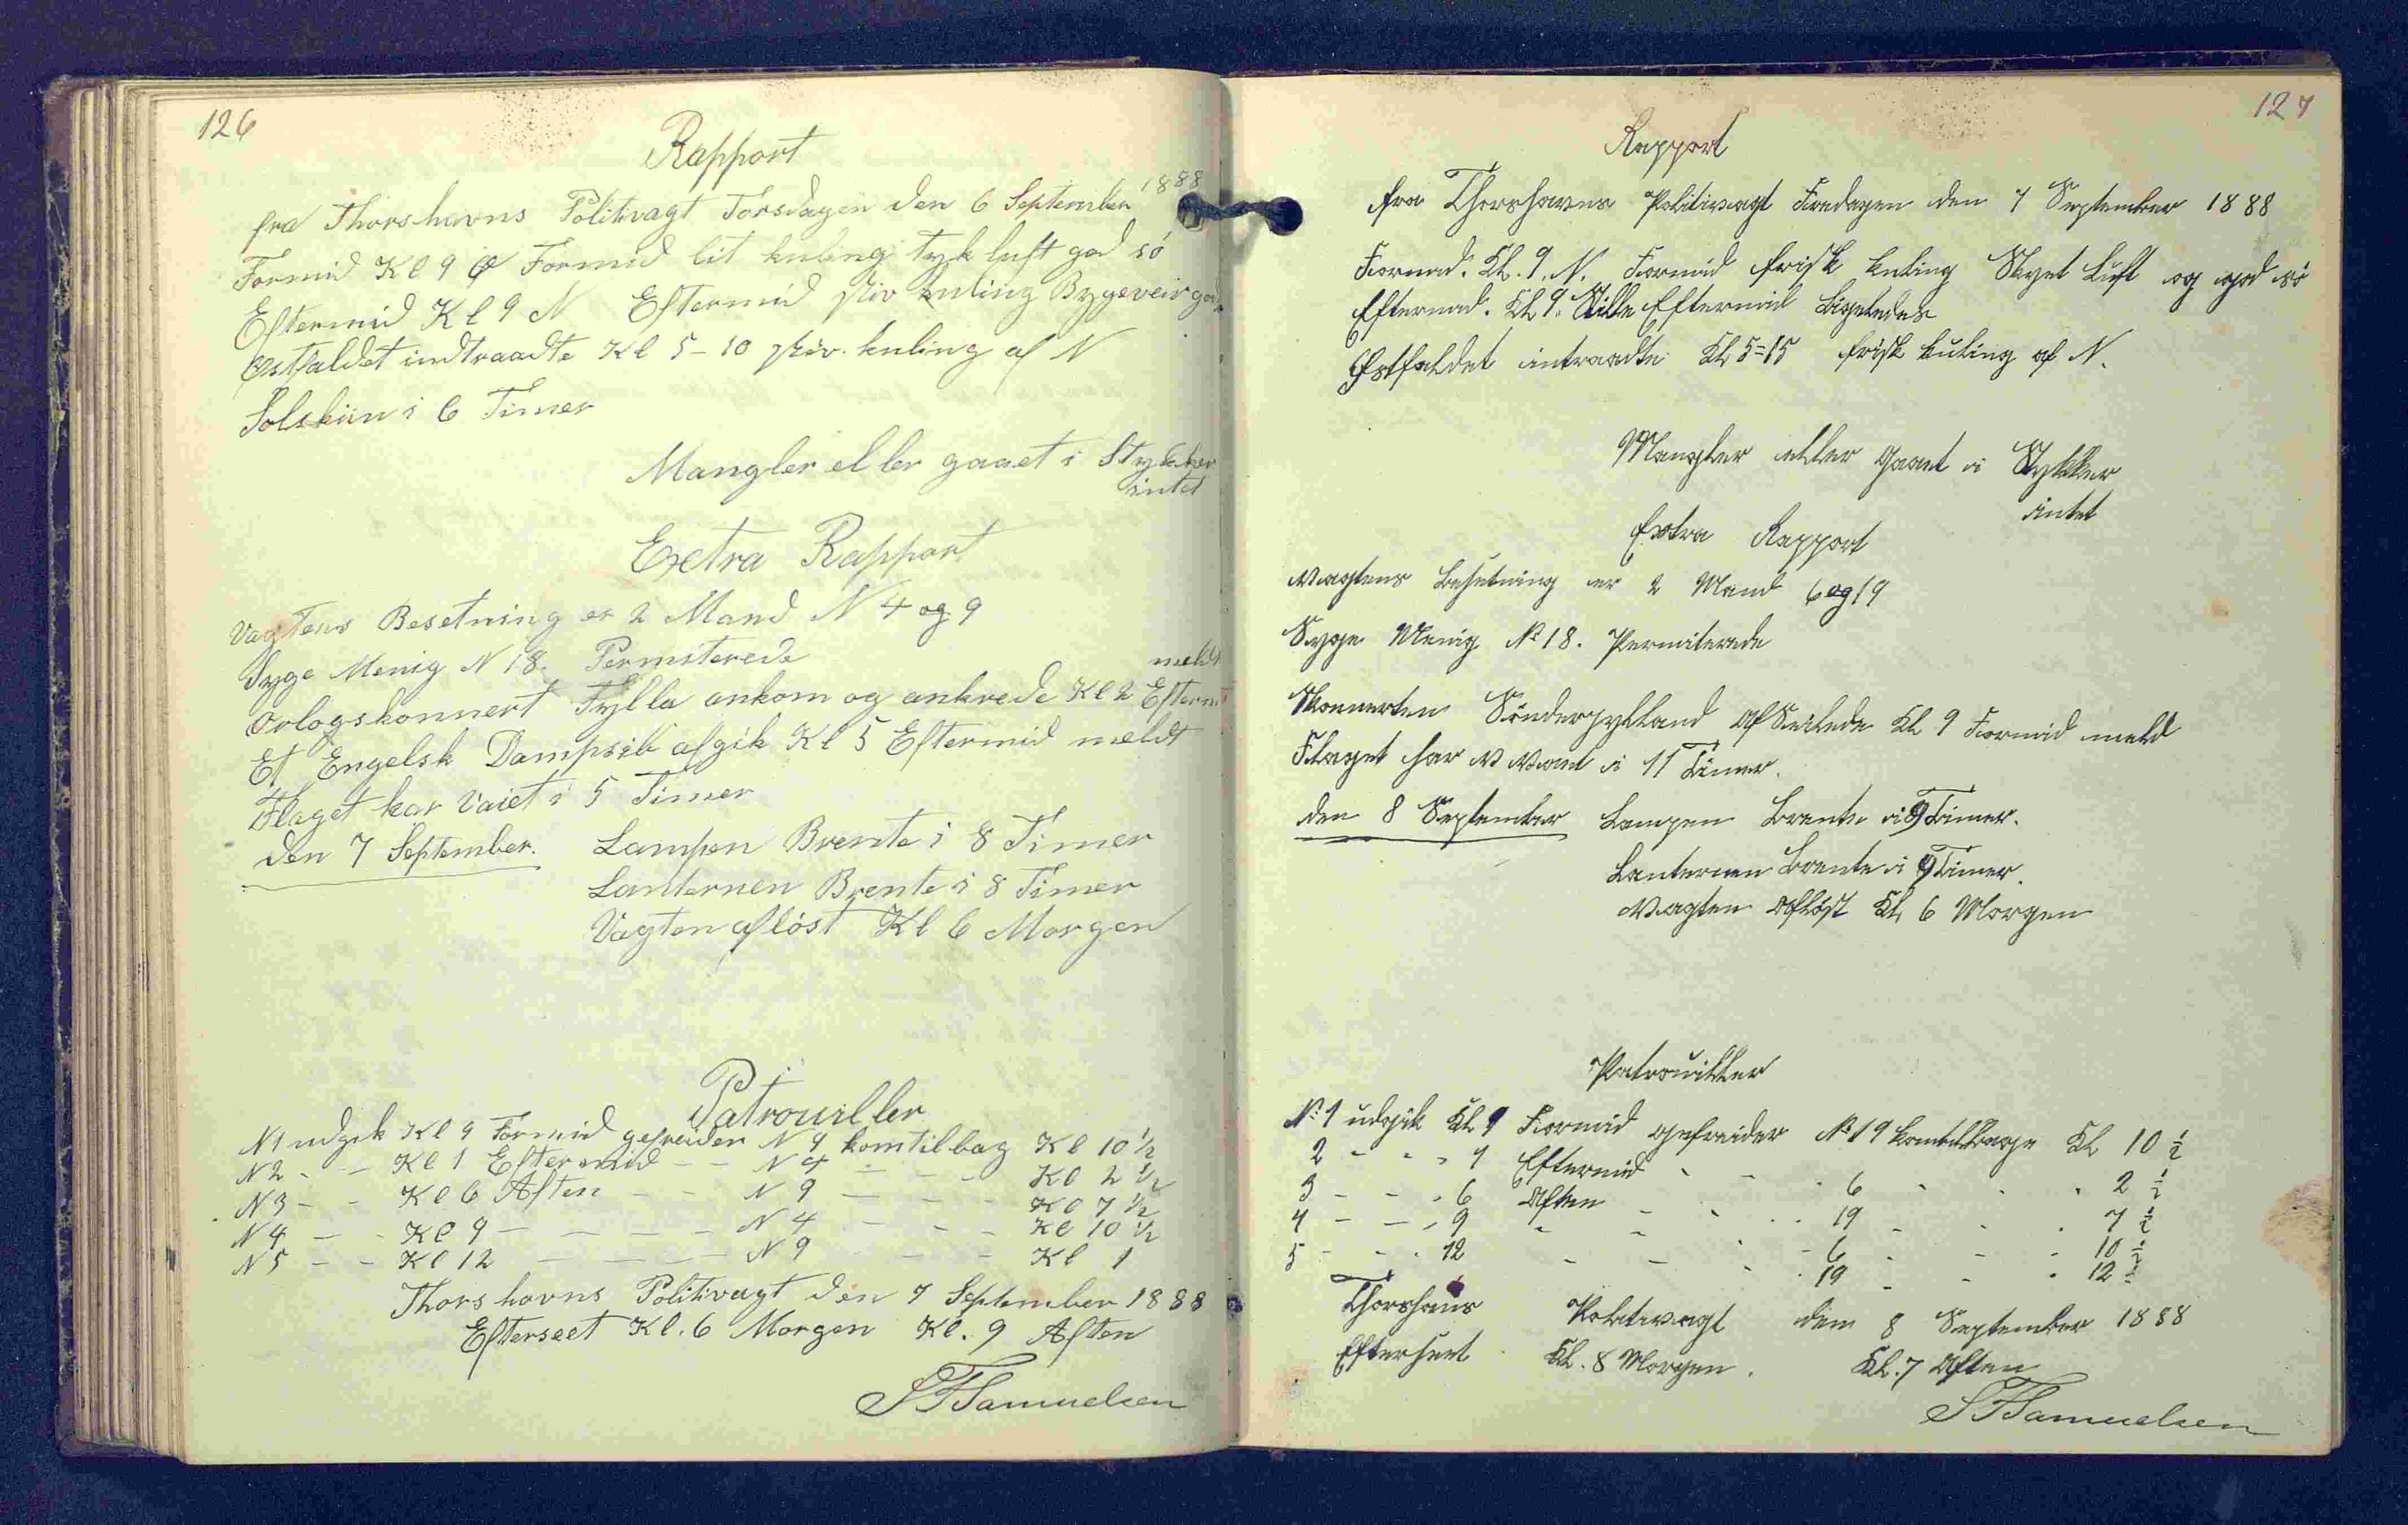 126
Rapport
fra Thorshavns Politivagt Torsdagen den 6 September 1888
Formid Kl 9 Ø Formid lit kuling tyk luft god sö
Eftermid Kl 9 N Eftermid stiv kuling Bygeveir god
Østfaldet indtraadte Kl 5-10 stiv. kuling af N
Solskin i 6 Timer
Mangler eller gaaet i Stykker
intet
Extra Rapport
Vagtens Besetning er 2 Mand N 4 og 9
Syge Menig N 18. Permiterede
Orlogskonnert Fylla ankom og ankrede Kl 2 Efterm meldt
Et Engelsk Dampsib afgik Kl 5 Eftermid meldt
Flaget har Vaiet i 5 Timer
den 7 September. Lampen Brente i 8 Timer
Lanternen Brente i 8 Timer
Vagten aflöst Kl 6 Morgen
Patrouiller
N1 udgik Kl 9 Formid gefreider N 9 kom tilbag Kl 10 ½
N2 - - Kl 1 Eftermid - - N 4 - - - Kl 2 ½
N3 - - Kl 6 Aften - - N 9 - - - Kl 7 ½
N4 - - Kl 9 - - - - N 4 - - - Kl 10 ½
N5 - - Kl 12 - - - - N 9 - - Kl 1
Thorshavns Politivagt den 7 September 1888
Efterseet Kl. 6 Morgen Kl. 9 Aften
SFSamuelsen
127
Rapport
fra Thorshavns Politivagt Fredagen den 7 September 1888
Formd. Kl. 9. N. Formid frisk kuling Skyet Luft og god sö
Eftermd. Kl 9. Stille Eftermid Ligeledes
Østfaldet intraadte Kl 5=15 frisk kuling af N.
Mangler eller Gaaet i Stykker
intet
Extra Rapport
Vagtens Besetning er 2 Mand 6 og 19
Syge Menig No 18. Permiterede
Skonnerten Sönderjylland af Seilede Kl 9 Formid meld
Flaget har Vaiet i 11 Timer.
den 8 September Lampen Brente i 9 Timer.
Lanternen Brente i 9 Timer.
Vagten Aflöst Kl 6 Morgen
Patrouiller
No 1 udgik Kl 9 Formid gefreider No 19 kom tilbage Kl 10 ½
2 - - - 1 Eftermid - - - 6 - - - 2 ½
3 - - - 6 Aften - - - 19 - - - 7 ½
4 - - - 9 - - - 6 - - - 10 ½
5 - - - 12 - - - 19 - - - 12 ½
Thorshavns Politivagt den 8 September 1888
Efterseet Kl. 8 Morgen. Kl. 7 Aften
SFSamuelsen